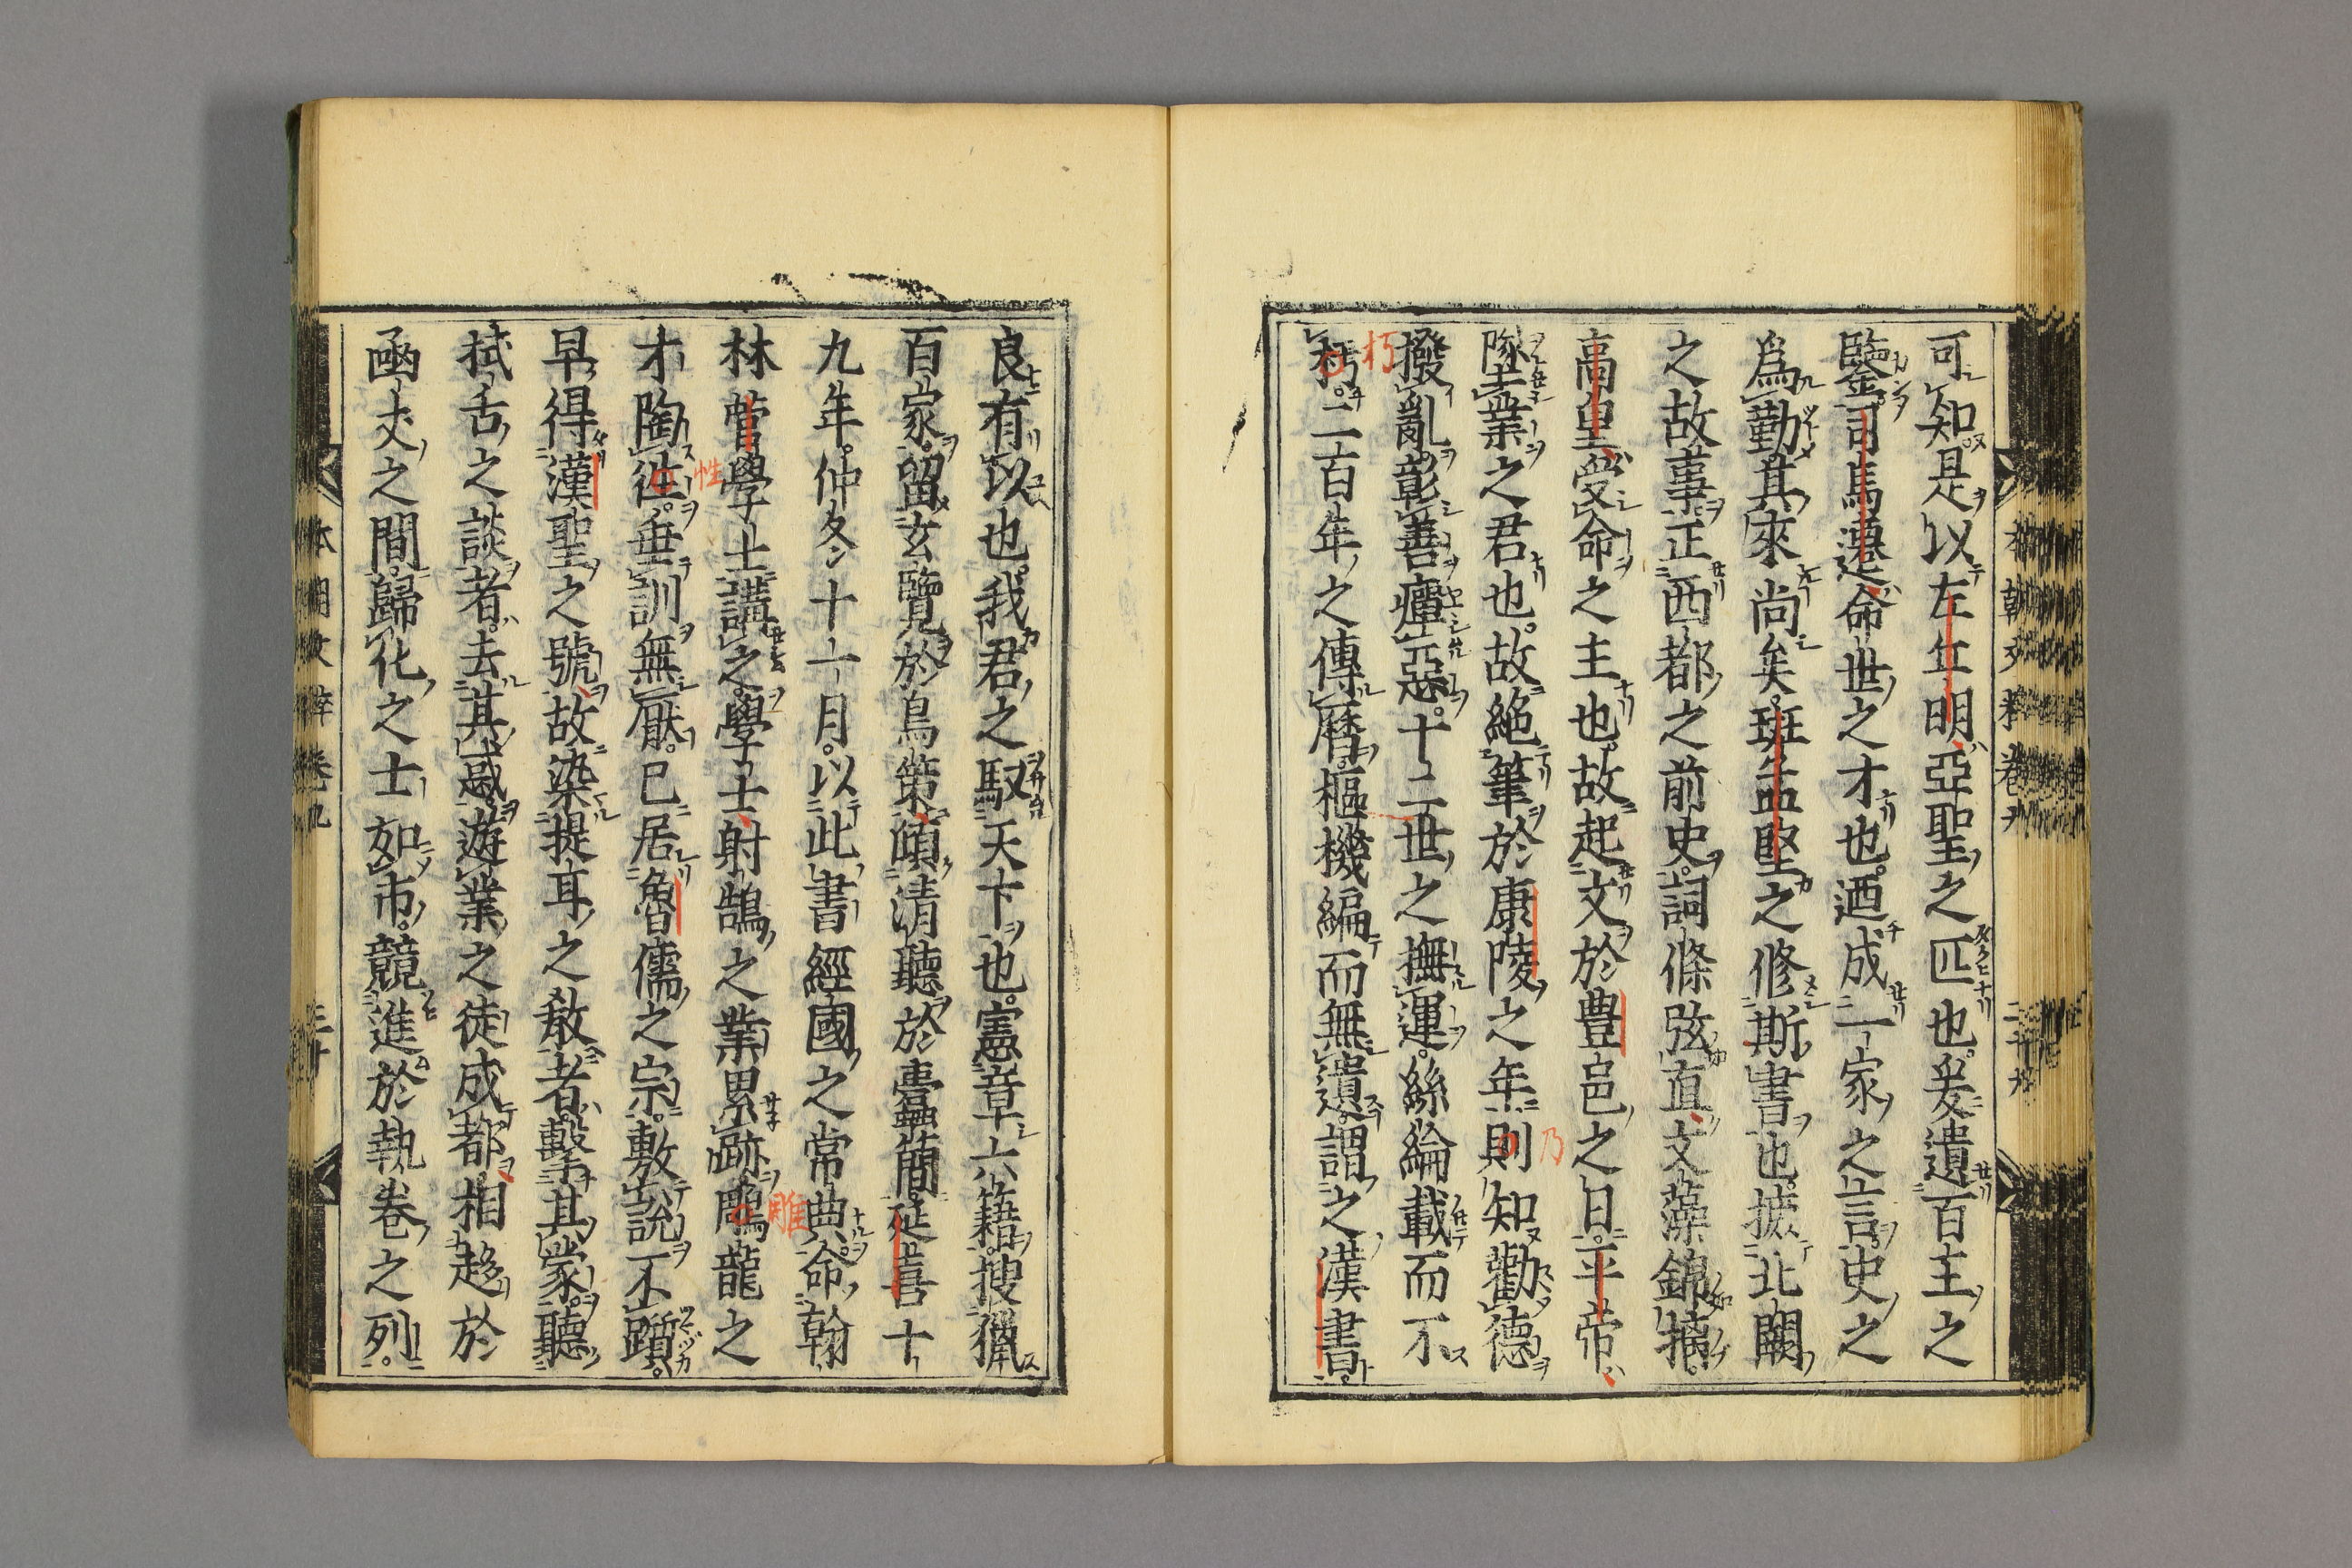 可知是以左丘明亞聖之匹也爰遺百王之
鑒司馬遷命世之才也迺成一家之言史之
爲勤其來尚矣班孟堅之修斯書也據北闕
之故事正西都之前史詞條弦直文藻錦摛
高皇受命之主也故起文於豊邑之日平帝
墜業之君也故絶筆於康陵之年則知勸德
乃
撥亂彰善癉惡十二世之撫運絲綸載而不
朽
朽二百年之傳暦樞機編而無遺謂之漢書
良有以也我君之馭天下也憲章六籍捜獵
百家留玄覽於鳥策傾清聽於蠹簡延喜十
九年仲冬十一月以此書經國之常典命翰
雕
林菅學士講之學士射鵠之業累跡鵰龍之
性
才陶往垂訓無厭已居魯儒之宗敷説不躓
早得漢聖之號故染提耳之敎者擊其蒙聽
拭舌之談者去其惑遊業之徒成都相趍於
函丈之間歸化之士如市競進於執卷之列
本朝文粹卷九